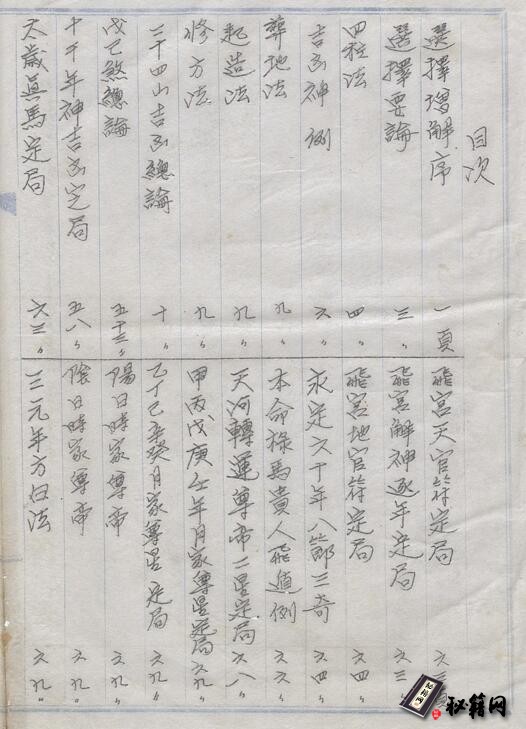 目次
選擇增解序 一頁
選擇要論 三〃
四柱法 四〃
吉凶神例 六〃
葬地法 九〃
起造法 九〃
修方法 九〃
二十四山吉凶總論 十〃
戊己煞總論 五十三〃
十干年神吉凶定局 五八〃
太歲真馬定局 六三〃
飛宮天官符定局 六三
飛宮解神逐年定局 六三〃
飛宮地官符定局 六四〃
永定六十年八節三奇 六四〃
本命祿馬貴人飛遁例 六六〃
天河轉運尊帝二星定局 六八〃
甲丙戊庚壬年月家尊星定局 六九〃
乙丁己辛癸月家尊星定局 六九〃
陽日時家尊帝 六九〃
陰日時家尊帝 六九〃
三元年方白法 六九〃
秘籍网